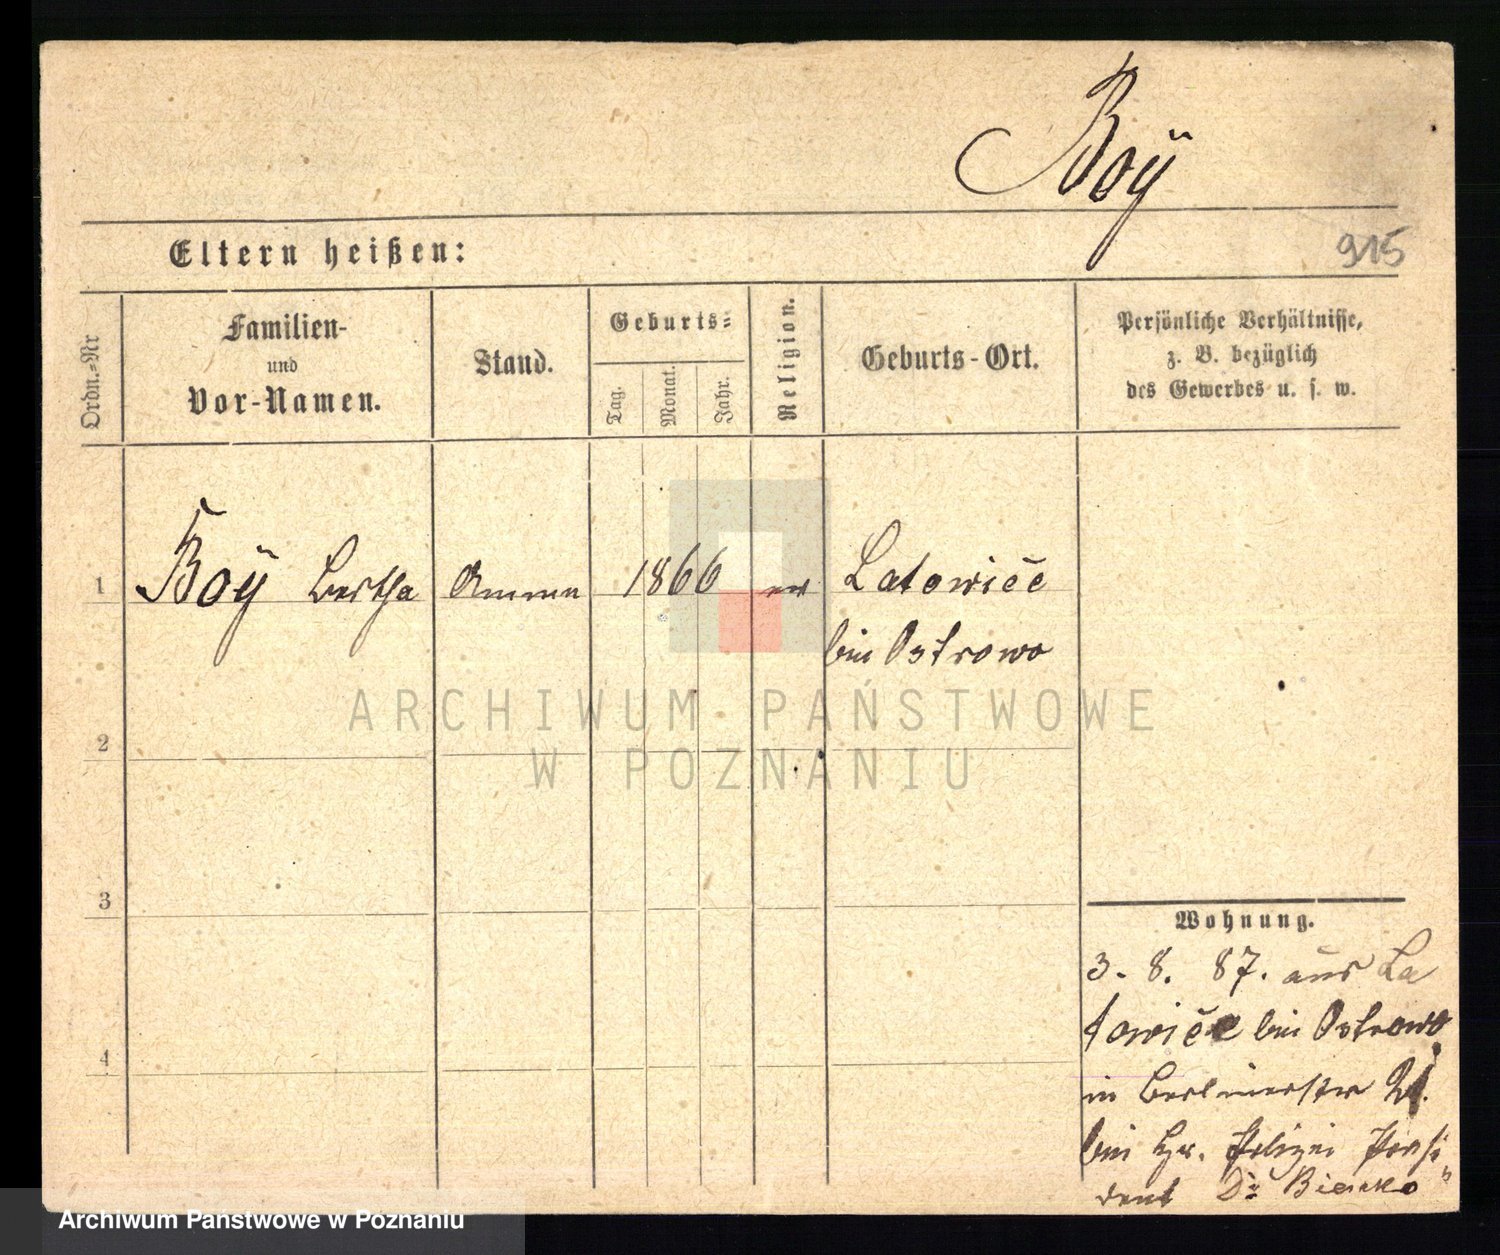 Boÿ
Eltern heißen:
915
Ordn.=Nr
Familien-
und
Vor-Namen.
Stand.
Geburts=
Tag.
Monat.
Jahr.
Religion.
Geburts-Ort.
Persönliche Verhältnisse,
z. B. bezüglich
des Gewerbes u. s. w.
1 Boÿ Bertha Amme 1866 ev Latowice
bei Ostrowo
ARCHIWUM PAŃSTWOWE
W POZNANIU
2
3
Wohnung.
3. 8. 87. aus La
towice bei Ostrowo
4
in Berlinerstr
bei Hr. Polizei Präsi
dent Dr Bienko
Archiwum Państwowe w Poznaniu